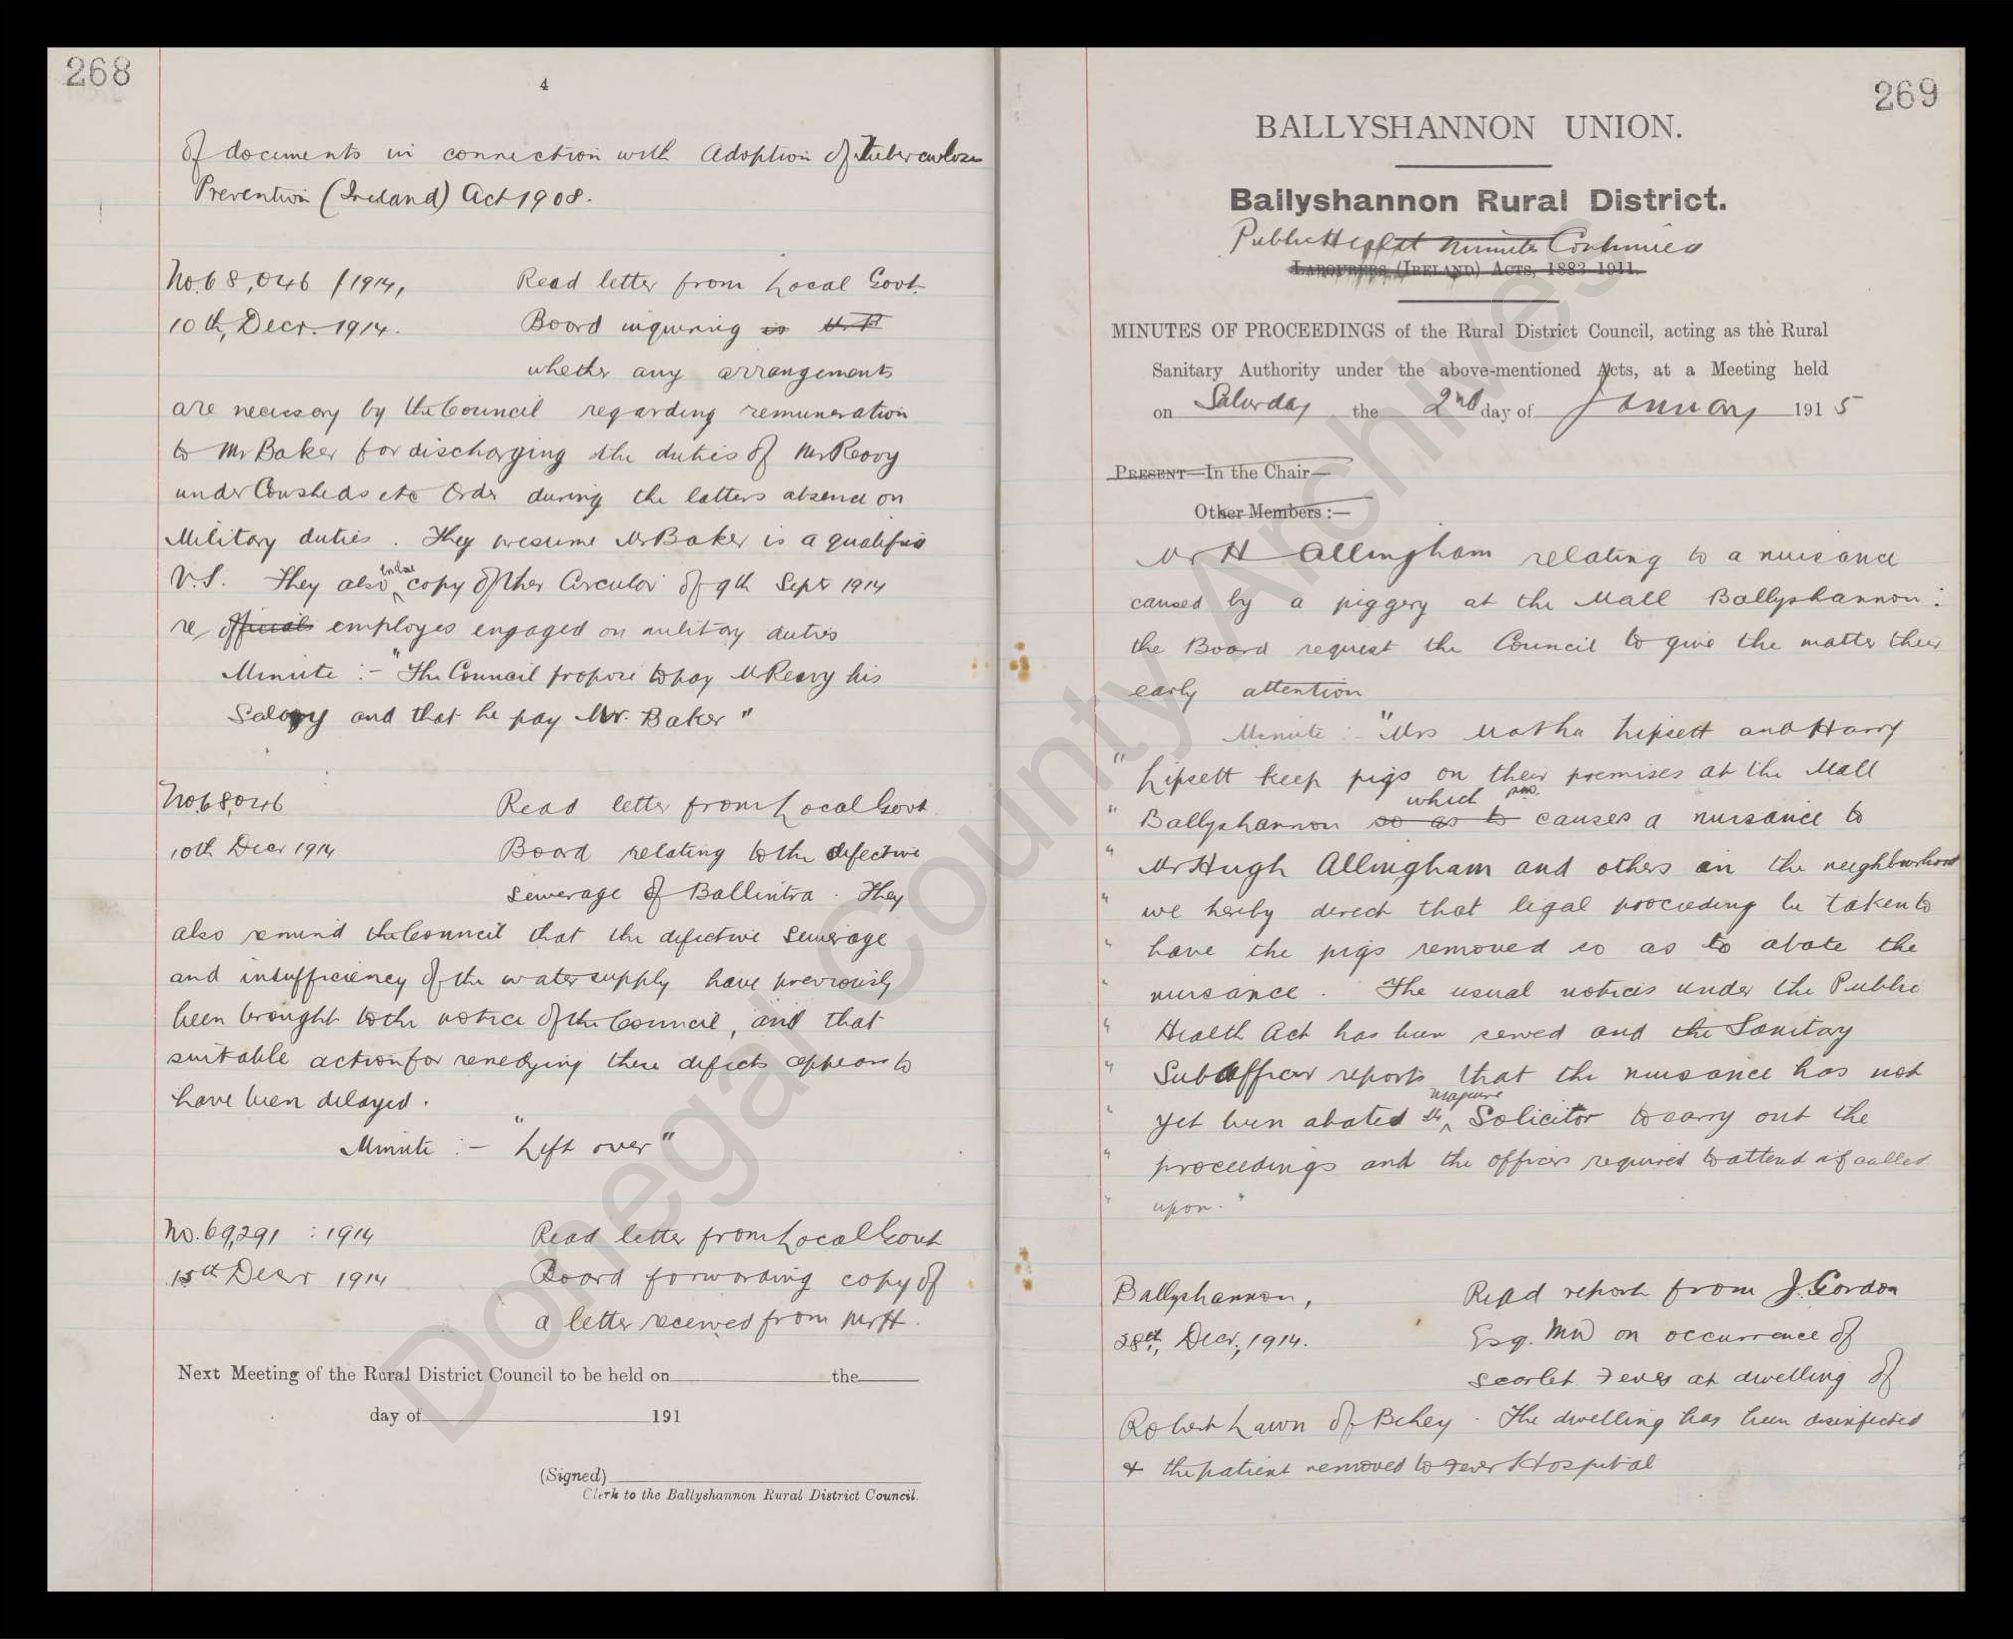 268
4
of documents in connection with Adoption of Tuberculosis
Prevention (Ireland) Act 1908.
No. 68,046 /1914, Read letter from Local Govt.
10th, Decr. 1914. Board inquiring
whether any arrangements
are necessary by the Council regarding remuneration
to Mr Baker for discharging the duties of Mr Reavy
under Cowsheds etc Order during the latters absence on
Military duties. They presume Mr Baker is a qualified
V.S. They also copy of ther Circular of 9th Sept 1914
re official employes engaged on military duties
Minute :- "The Council propose to pay Mr Reavy his
Salary and that he pay Mr. Baker"
No 68,046 Read letter from Local Govt.
10th Decr 1914 Board relating to the defective
Sewerage of Ballintra. They
also remind the Council that the defective Sewerage
and insufficiency of the water supply have previously
been brought to the notice of the Council, and that
suitable action for remedying these defects appears to
have been delayed.
Minute :- "Left over"
No. 69,291 : 1914 Read letter from Local Govt
15th Decr 1914 Board forwarding copy of
a letter received from Mr H.
Next Meeting of the Rural District Council to be held on the
day of 191
(Signed)
Clerk to the Ballyshannon Rural District Council.
269
BALLYSHANNON UNION.
Ballyshannon Rural District.
Public Health Minutes Continued
LABOURERS (IRELAND) ACTS, 1883-1911.
MINUTES OF PROCEEDINGS of the Rural District Council, acting as the Rural
Sanitary Authority under the above-mentioned Acts, at a Meeting held
on Saturday the 2nd day of January 1915
PRESENT—In the Chair—
Other Members :—
Mr H Allingham relating to a nuisance
caused by a piggery at the Mall Ballyshannon :
the Board request the Council to give the matter their
early attention
Minute :- "Mrs Martha Lipsett and Harry
" Lipsett keep pigs on their premises at the Mall
which
" Ballyshannon so as to causes a nuisance to
" Mr Hugh Allingham and others in the neighbourhood
" we hereby direct that legal proceeding be taken to
" have the pigs removed so as to abate the
" nuisance. The usual notices under the Public
" Health Act has been served and the Sanitary
" Sub Officer reports that the nuisance has not
" yet been abated the Solicitor to carry out the
" proceedings and the officers required to attend if called
" upon."
Ballyshannon, Read report from J. Gordon
28th, Decr., 1914. Esq. MD on occurrence of
Scarlet Fever at dwelling of
Robert Lawn of Behey. The dwelling has been disinfected
& the patient removed to Fever Hospital
Donegal County Archives